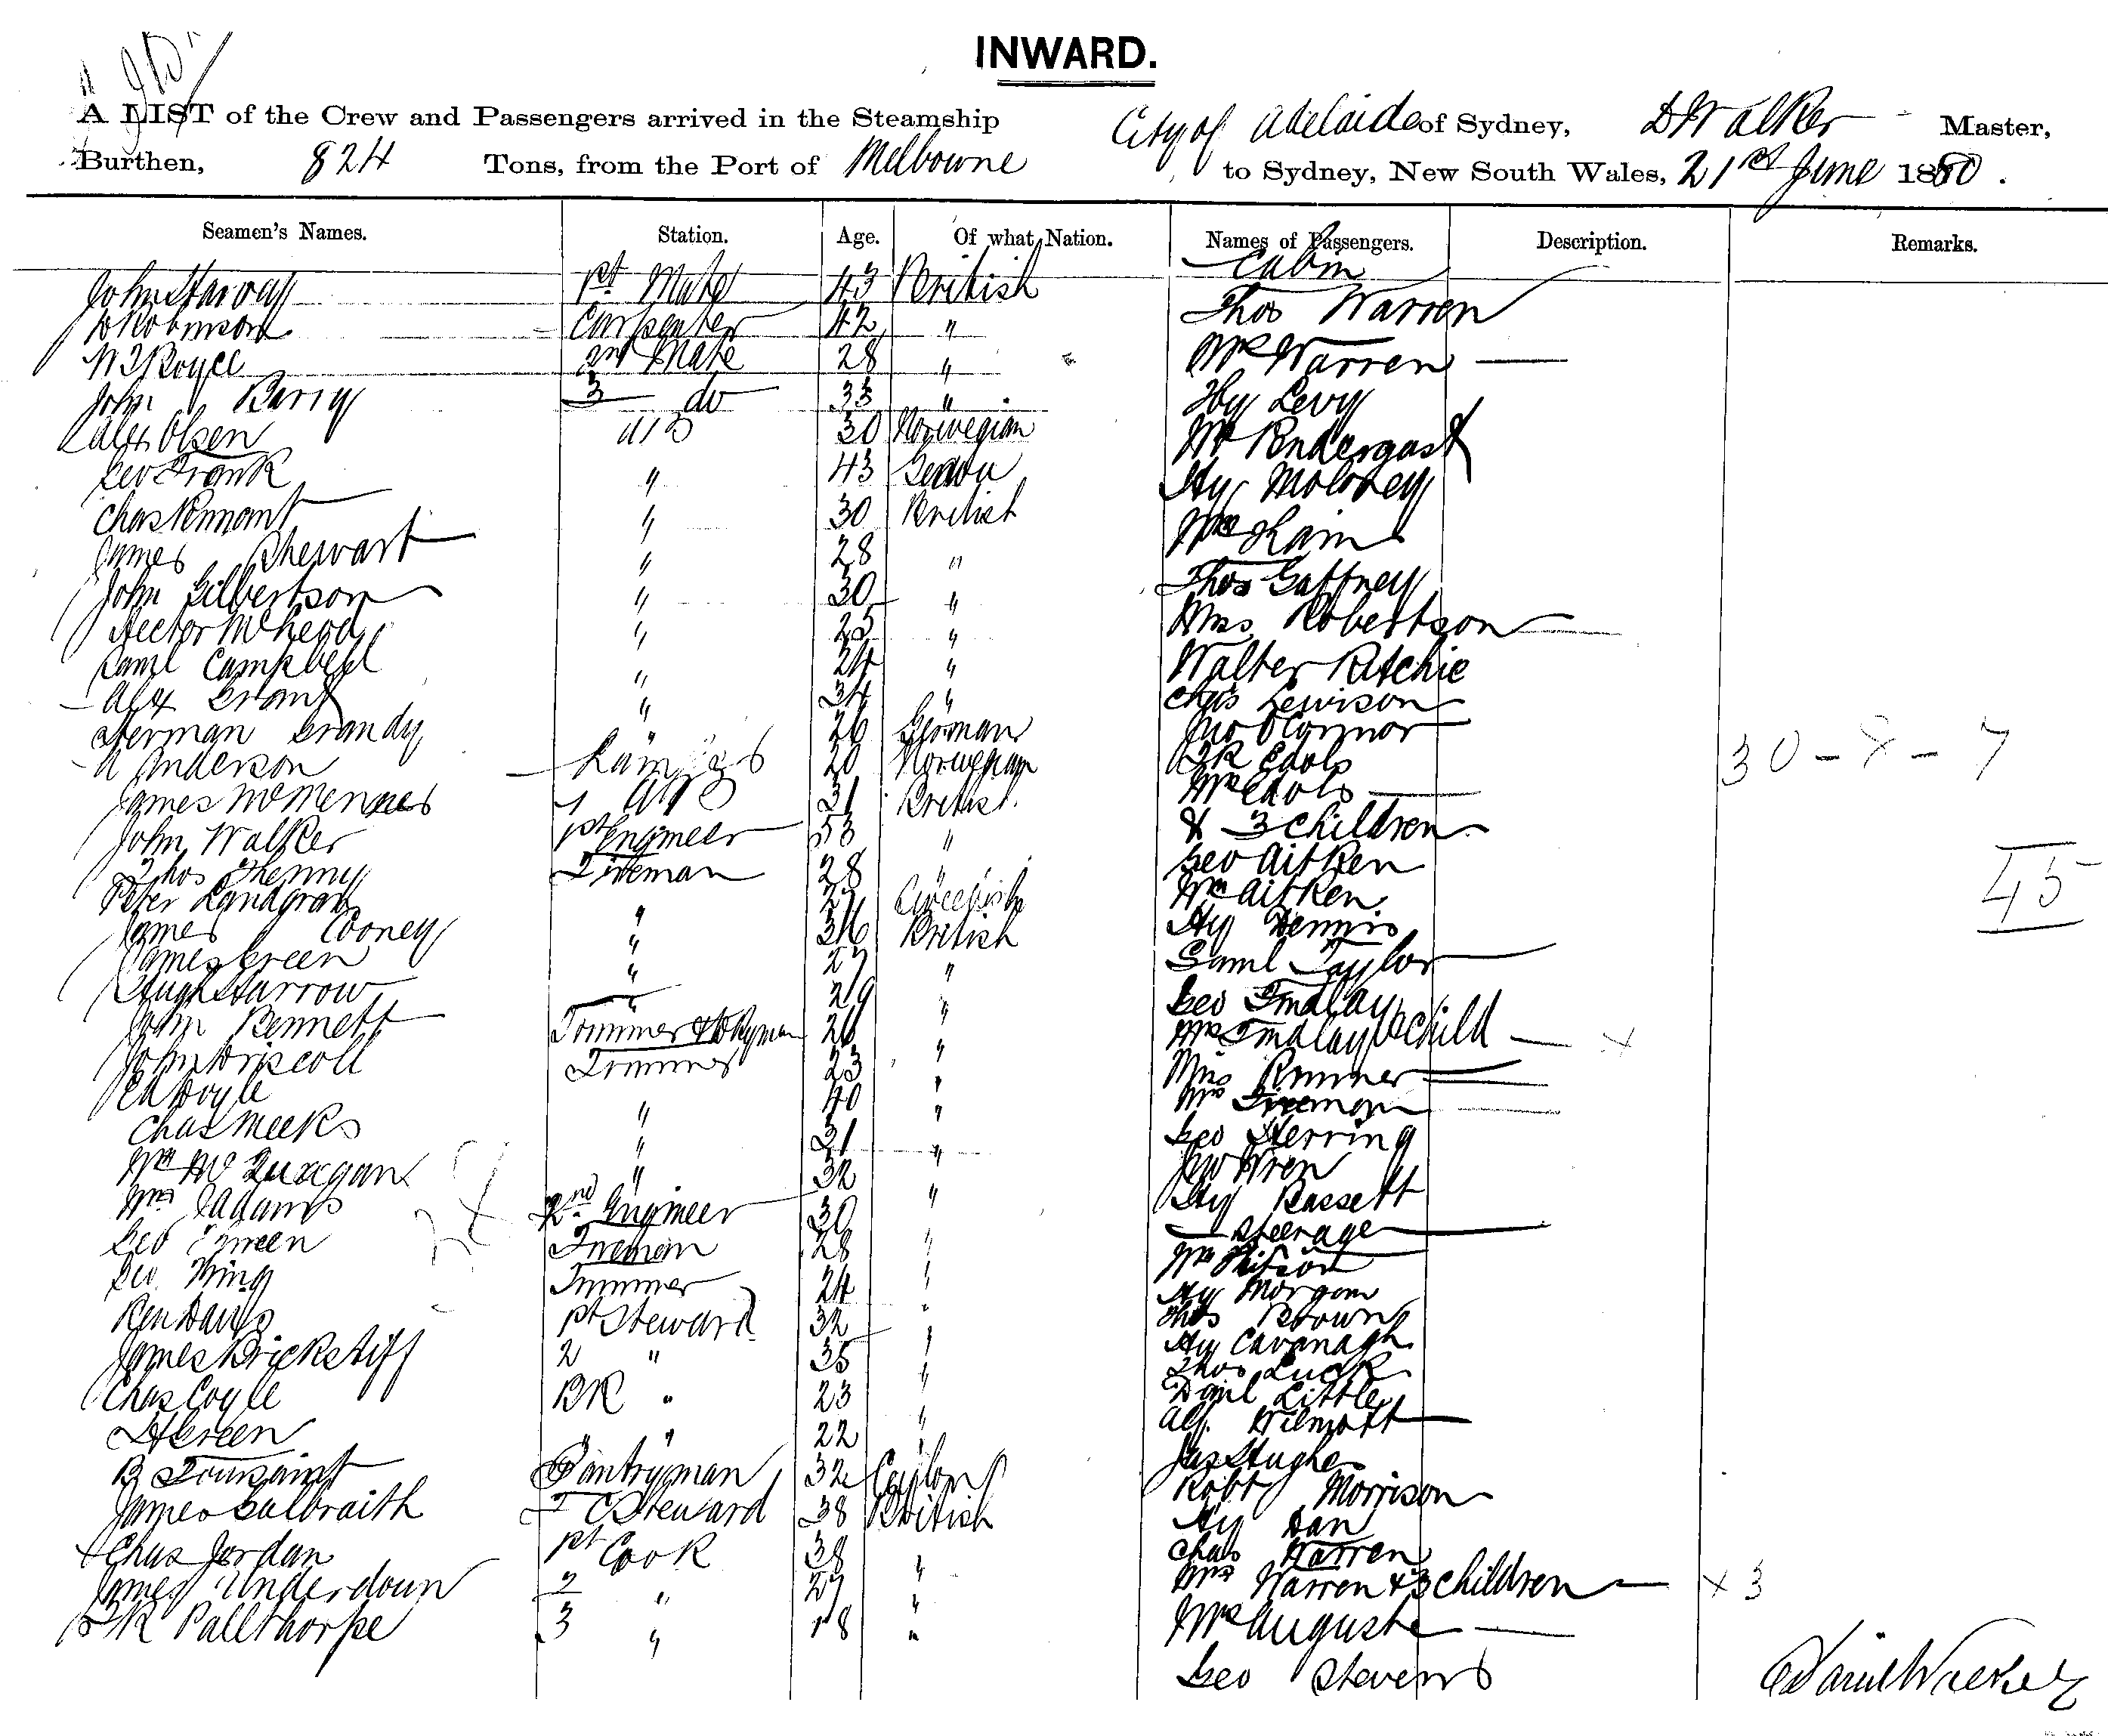 INWARD.
A LIST of the Crew and Passengers arrived in the Steamship City of Adelaide of Sydney, D Walker Master,
Burthen, 824 Tons, from the Port of Melbourne to Sydney, New South Wales, 21st June 1880.
Seamen's Names. Station. Age. Of what Nation. Names of Passengers. Description. Remarks.
Cabin
John Harvay 1st Mate 43 British Thos Warren
D Robinson Carpenter 42 " Mrs Warren
W J Royce 2nd Mate 28 " Hy Levy
John Barry 3 do 33 " Mr Pendergast
Alex Olsen AB 30 Norwegian Hy Moloney
Geo Frank " 43 Mrs Hain
Chas Pennant " 30 British Thos Gaffney
James Shewart " 28 " Miss Robertson
John Gilbertson " 30 " Walter Ritchie
Hector " 25 " Chas Lewison
Saml Campbell " 24 " Jno O'Connor
Alex Grant " 34 " Edols
Herman Grandy " 26 German Mrs Edols
A Anderson Lamps 20 Norwegian & 3 children
James McMennes AB 21 British Geo Aitken
John Walker 1st Engineer 53 " Wm Aitken
Thos Fireman 28 " Hy Dennis
Peter Landgran " 27 Sweedish Saml Taylor
James Cooney " 36 British Geo Findlay
James Green " 27 " Mrs Findlay & child
Hugh Harrow " 29 " Miss Rummer
John Bennett Trimmer & 26 " Mrs Fireman
John Driscoll Trimmer 23 " Geo Herring
Ed Doyle 40 " Jno Wren
Chas Meeks " 21 " Hy Bassett
Wm " 32 " Steerage
Wm Adams 2nd Engineer 30 " Wm
Geo Green Fireman 28 " Hy Morgan
Geo King Trimmer 24 " Thos Brown
Ben Davis 1st Steward 32 " Hy Cavanagh
James Brickstiff 2 " 35 " Thos Luck
Chas Coyle BR " 23 " Danl Little
H Green " " 22 " Alf. Wilmott
B Toussaint Pantryman 32 Ceylon Jas Hughes
James Galbraith F C Steward 38 British Robt Morrison
Chas Jordan 1st Cook 38 " Hy Dan
James Underdown 2 " 27 " Chas Warren
Pallthorpe 3 " 18 " Mrs Warren & 3 children
Mrs Auguste
Geo Stevens
30 - 8 - 7
45
x
x 3
Daniel Walker